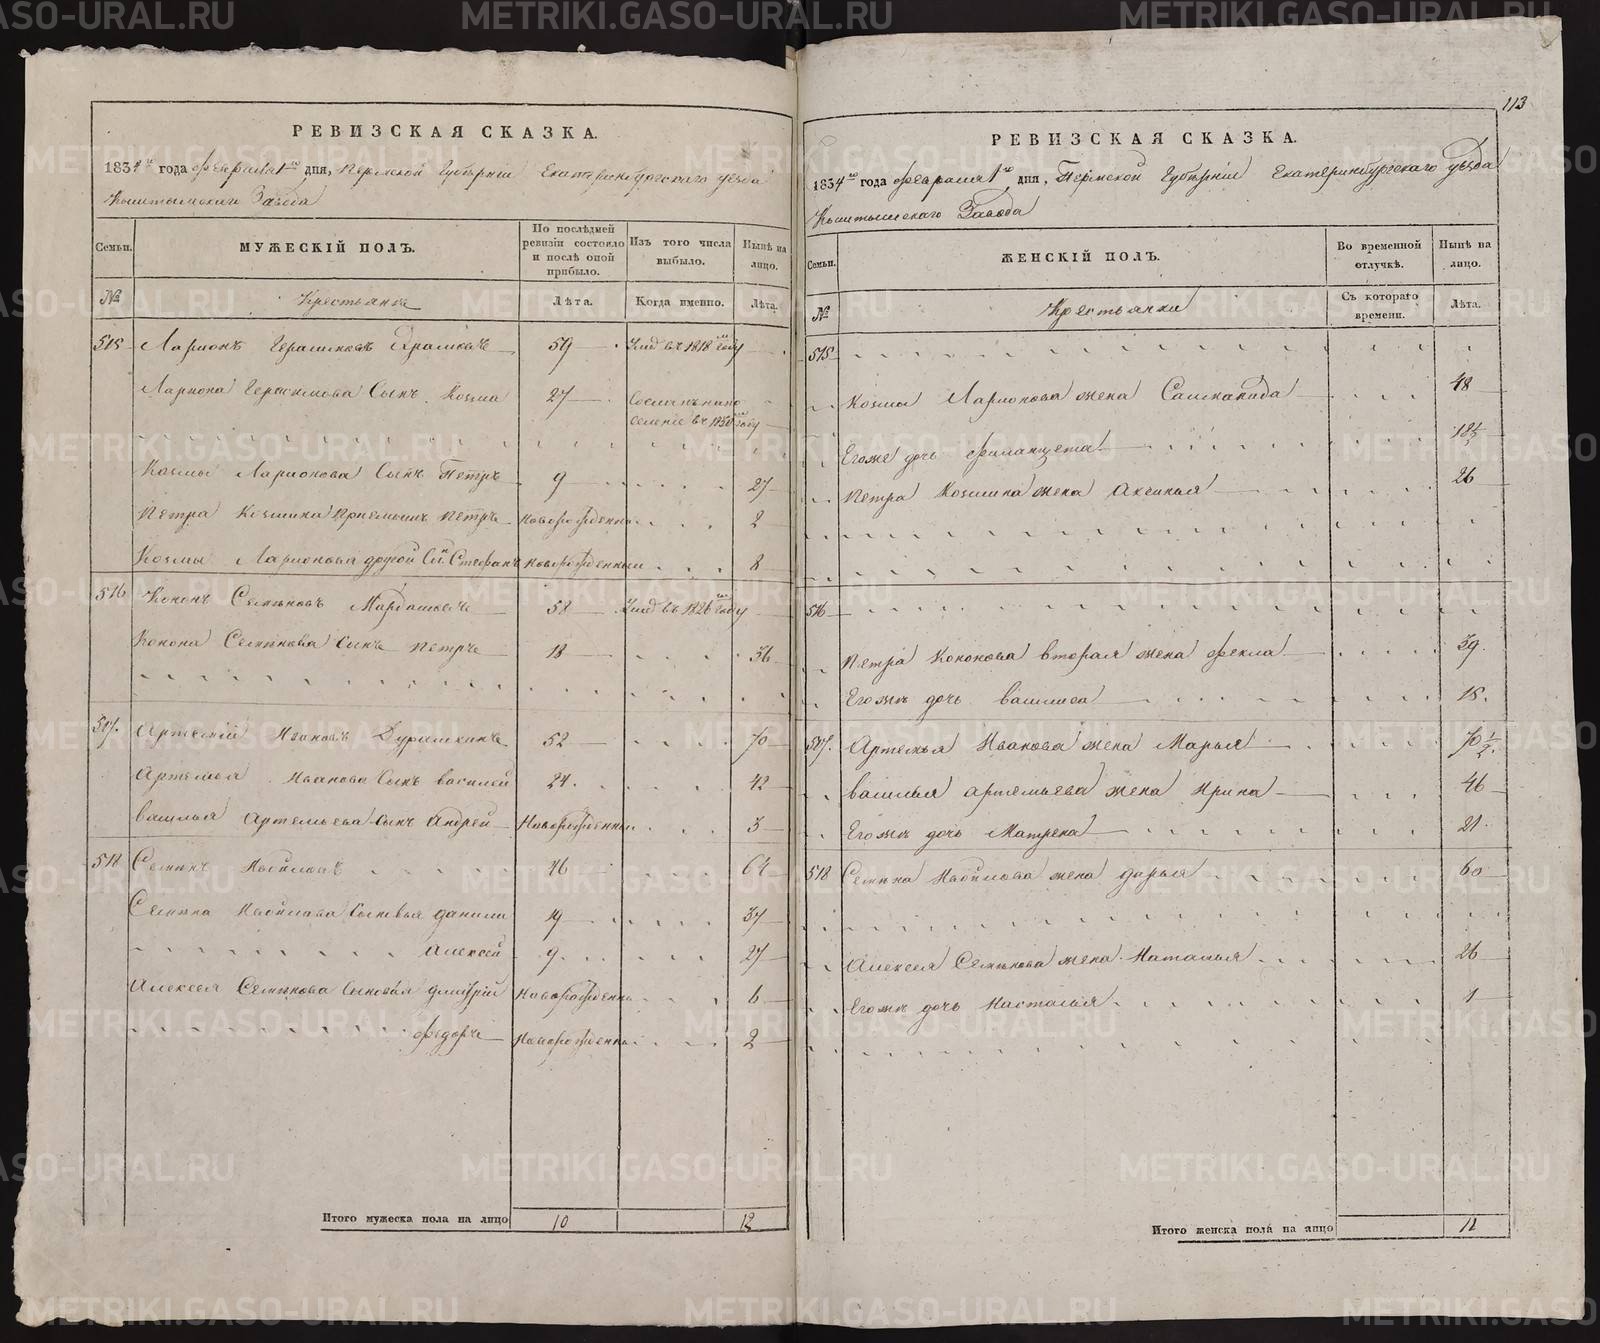 РЕВИЗСКАЯ СКАЗКА.
1834го года февраля 1го дня, Пермской Губерніи Екатеринбургскаго уѣзда
Кыштымскаго Завода
Семьи.
МУЖЕСКІЙ ПОЛЪ.
По послѣдней ревизіи состояло и послѣ оной прибыло.
Изъ того числа выбыло.
Нынѣ на лицо.
№
Крестьяне
Лѣта.
Когда именно.
Лѣта.
515 Ларионъ Герасимовъ 59 Умд въ 1818м году
Лариона Герасимова Сынъ Козма 27 Сосланъ на по
селеніе въ 1830м году
Козмы Ларионова Сынъ Петръ 9 27
Петра Козмина Приемышъ Петръ новорожденны 2
Козмы Ларионова другой Сы. Стефанъ новорожденныи 8
516 Кононъ Семеновъ 58 Умд въ 1826м году
Конона Семенова Сынъ Петръ 18 36
517. Артемій Ивановъ 52 70
Артемья Иванова Сынъ Василей 24. 42
Василья Артемьева Сынъ Андрей Новорожденны 3
518 Семенъ 46 64
Семена Сыновья Данило 19 37
Алексей 9 27
Алексея Семенова Сыновья Дмитрій Новорожденны 6
Федоръ Новорожденны 2
Итого мужеска пола на лицо 10 12
113
РЕВИЗСКАЯ СКАЗКА.
1834го года февраля 1го дня, Пермской Губерніи Екатеринбургскаго уѣзда
Кыштымскаго Завода
Семьи.
ЖЕНСКІЙ ПОЛЪ.
Во временной отлучкѣ.
Нынѣ на лицо.
№
Крестьянки
Съ котораго времени.
Лѣта.
515
Козмы Ларионова жена 48
Егоже дочь 18½
Петра Козмина жена Аксинья 26
516
Петра Кононова вторая жена Фекла 39.
Егожъ дочь Василиса 18.
517. Артемья Иванова жена Марья 70½.
Василья Артемьева жена Ирина 46
Егожъ дочь Матрена 21.
518 Семена жена Дарья 60
Алексея Семенова жена Наталья 26
Егожъ дочь Настасья 1
Итого женска пола на лицо 11
METRIKI.GASO-URAL.RU